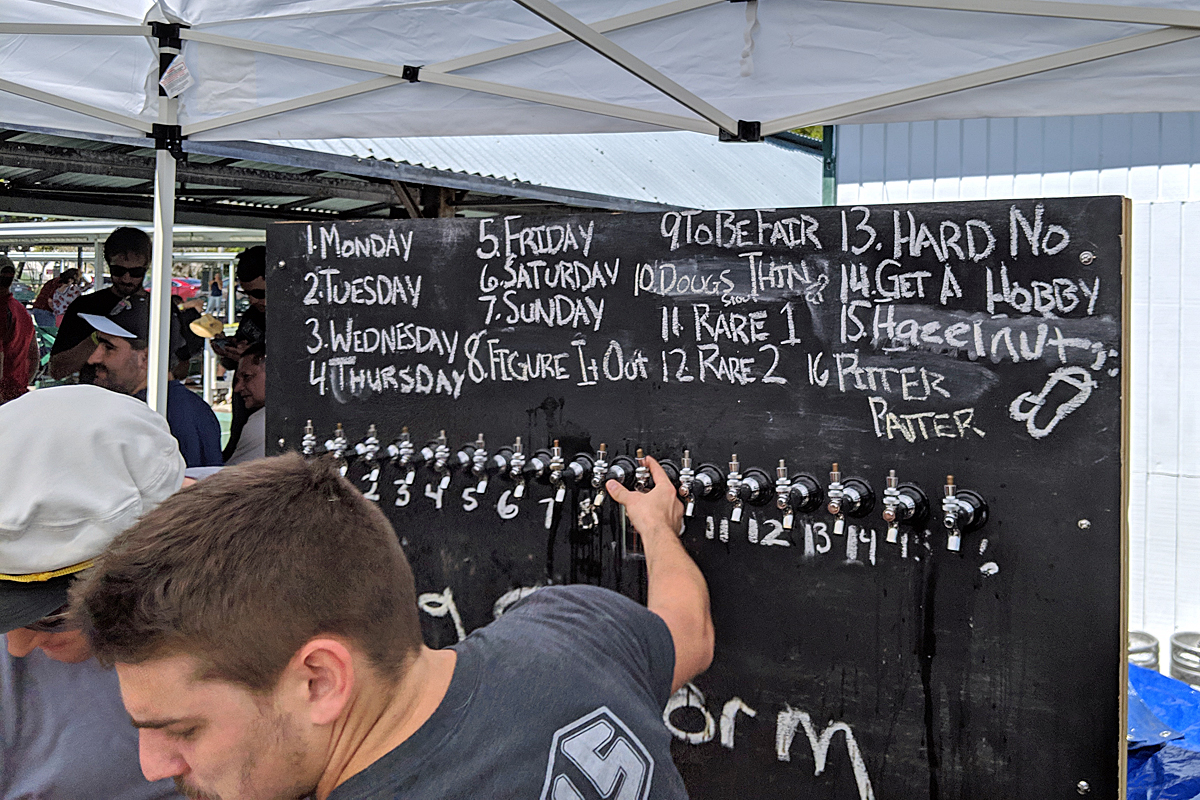 1. MONDAY
2. TUESDAY
3. WEDNESDAY
4. THURSDAY
5. FRIDAY
6. SATURDAY
7. SUNDAY
8. FIGURE It Out
9 To BE FAIR
10. DOUGS THIN
Stout
11. RARE 1
12 RARE 2
13. HARD No
14. GET A HOBBY
15. Hazelnut
16 PITTER
PATTER
2 3 4 5 6 7 8 11 12 13 14
orm